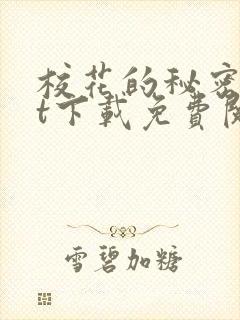 校花的秘密
t下載免費閱
雪碧加糖